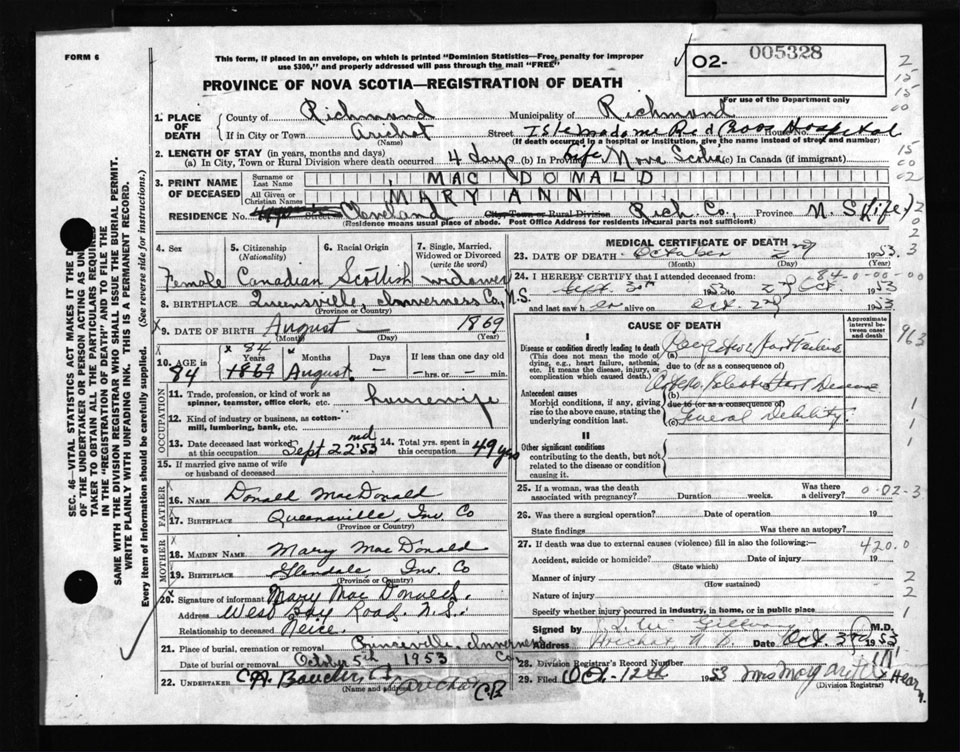 FORM 6
This form, if placed in an envelope, on which is printed "Dominion Statistics—Free, penalty for improper
use $300," and properly addressed will pass through the mail "FREE"
O2- 005328
For use of the Department only
PROVINCE OF NOVA SCOTIA—REGISTRATION OF DEATH
1. PLACE OF DEATH
County of Richmond
Municipality of Richmond
If in City or Town Arichat
(Name)
Street Isle Madame Red Cross Hospital House No.
(If death occurred in a hospital or institution, give the name instead of street and number)
2. LENGTH OF STAY (in years, months and days)
(a) In City, Town or Rural Division where death occurred 4 days (b) In Province Life Nova Scotia (c) in Canada (if immigrant)
3. PRINT NAME OF DECEASED
Surname or Last Name MAC DONALD
All Given or Christian Names MARY ANN
RESIDENCE No. Street Cleveland City, Town or Rural Division Rich. Co., Province N. S. (Life)
(Residence means usual place of abode. Post Office Address for residents in rural parts not sufficient)
4. Sex
Female
5. Citizenship
(Nationality)
Canadian
6. Racial Origin
Scottish
7. Single, Married, Widowed or Divorced
(write the word)
widowed
8. BIRTHPLACE Queensville, Inverness Co., N.S.
(Province or Country)
9. DATE OF BIRTH August — 1869
(Month) (Day) (Year)
10. AGE IN 84
84 Years 1869
Months August
Days —
If less than one day old
— hrs. or — min.
OCCUPATION
11. Trade, profession, or kind of work as
spinner, teamster, office clerk, etc. housewife
12. Kind of industry or business, as cotton-
mill, lumbering, bank, etc.
13. Date deceased last worked
at this occupation Sept 22nd '53
14. Total yrs. spent in
this occupation 49 yrs
15. If married give name of wife
or husband of deceased
FATHER
16. NAME Donald MacDonald
17. BIRTHPLACE Queensville, Inv. Co
(Province or Country)
MOTHER
18. MAIDEN NAME Mary MacDonald
19. BIRTHPLACE Glendale Inv. Co
(Province or Country)
20. Signature of informant Mary MacDonald
Address West Bay Road, N.S.
Relationship to deceased Neice.
21. Place of burial, cremation or removal Princeville, Inverness Co.
Date of burial or removal October 5th 1953
22. UNDERTAKER Arichat CB
(Name and address)
MEDICAL CERTIFICATE OF DEATH
23. DATE OF DEATH October 2nd 1953
(Month) (Day) (Year)
24. I HEREBY CERTIFY that I attended deceased from:
Sept. 30th 1953 to 2nd Oct. 1953
and last saw her alive on Oct. 2nd 1953
84 0-00-00
CAUSE OF DEATH
Approximate interval between onset and death
I
Disease or condition directly leading to death
(This does not mean the mode of
dying, e.g., heart failure, asthenia,
etc. It means the disease, injury, or
complication which caused death.)
(a) Congestive Heart Failure
due to (or as a consequence of)
Antecedent causes
Morbid conditions, if any, giving
rise to the above cause, stating the
underlying condition last.
(b) Heart Disease
due to (or as a consequence of)
(c) General Debility.
II
Other significant conditions
contributing to the death, but not
related to the disease or condition
causing it.
25. If a woman, was the death
associated with pregnancy? Duration weeks. Was there a delivery? 0-02-3
26. Was there a surgical operation? Date of operation 19
State findings Was there an autopsy?
27. If death was due to external causes (violence) fill in also the following: 420.0
Accident, suicide or homicide? Date of injury 19
(State which)
Manner of injury
(How sustained)
Nature of injury
Specify whether injury occurred in industry, in home, or in public place
Signed by M.D.
Address Arichat Date Oct. 3rd 1953
28. Division Registrar's Record Number
29. Filed Oct. 12th 1953 Mrs Margaret
(Division Registrar)
SEC. 46—VITAL STATISTICS ACT MAKES IT THE D
OF THE UNDERTAKER OR PERSON ACTING AS UN
TAKER TO OBTAIN ALL THE PARTICULARS REQUIRED
IN THE "REGISTRATION OF DEATH" AND TO FILE THE
SAME WITH THE DIVISION REGISTRAR WHO SHALL ISSUE THE BURIAL PERMIT.
WRITE PLAINLY WITH UNFADING INK. THIS IS A PERMANENT RECORD.
Every item of information should be carefully supplied. (See reverse side for instructions.)
2
15
15
00
15
00
02
2
0
2
3
963
1
1
1
2
2
1